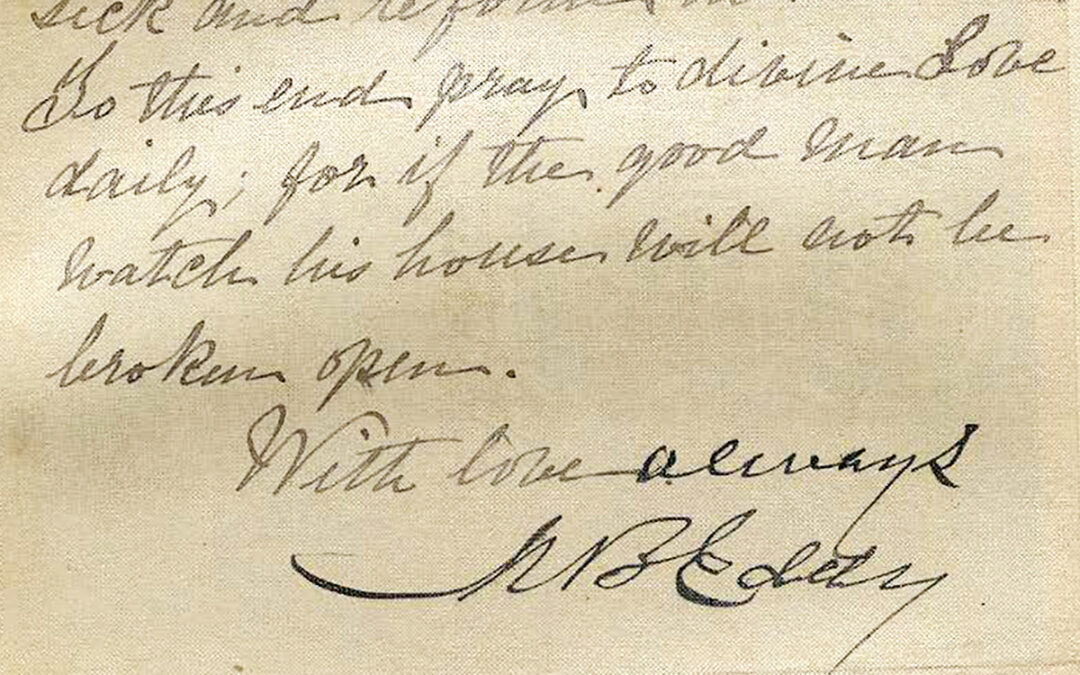 sick and reform
To this end pray to divine Love
daily; for if the good man
watch his house will not be
broken open.
With love always
M B Eddy